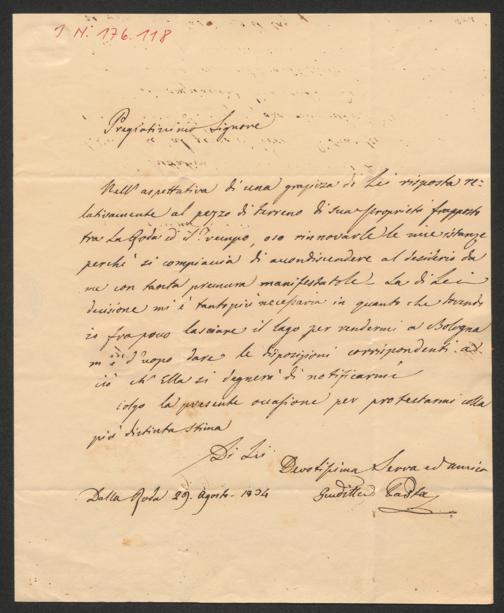 I N. 176.118
Pregiatissimo Signore
Nell'aspettativa di una graziosa di Lei risposta re-
lativamente al pezzo di terreno di sua proprietà frapposto
tra La Roda ed il oso rinnovarle le mie istanze
perchè si compiaccia di accondiscendere al desiderio da
me con tanta premura manifestatole. La di Lei
decisione mi è tanto più necessaria in quanto che dovendo
io fra poco lasciare il lago per rendermi a Bologna
m'è d'uopo dare le disposizioni corrispondenti a
ciò ch'Ella si degnerà di notificarmi
Colgo la presente occasione per protestarmi colla
più distinta stima
Di Lei
Devotissima Serva ed amica
Dalla Roda 29. Agosto. 1834 Giuditta Pasta